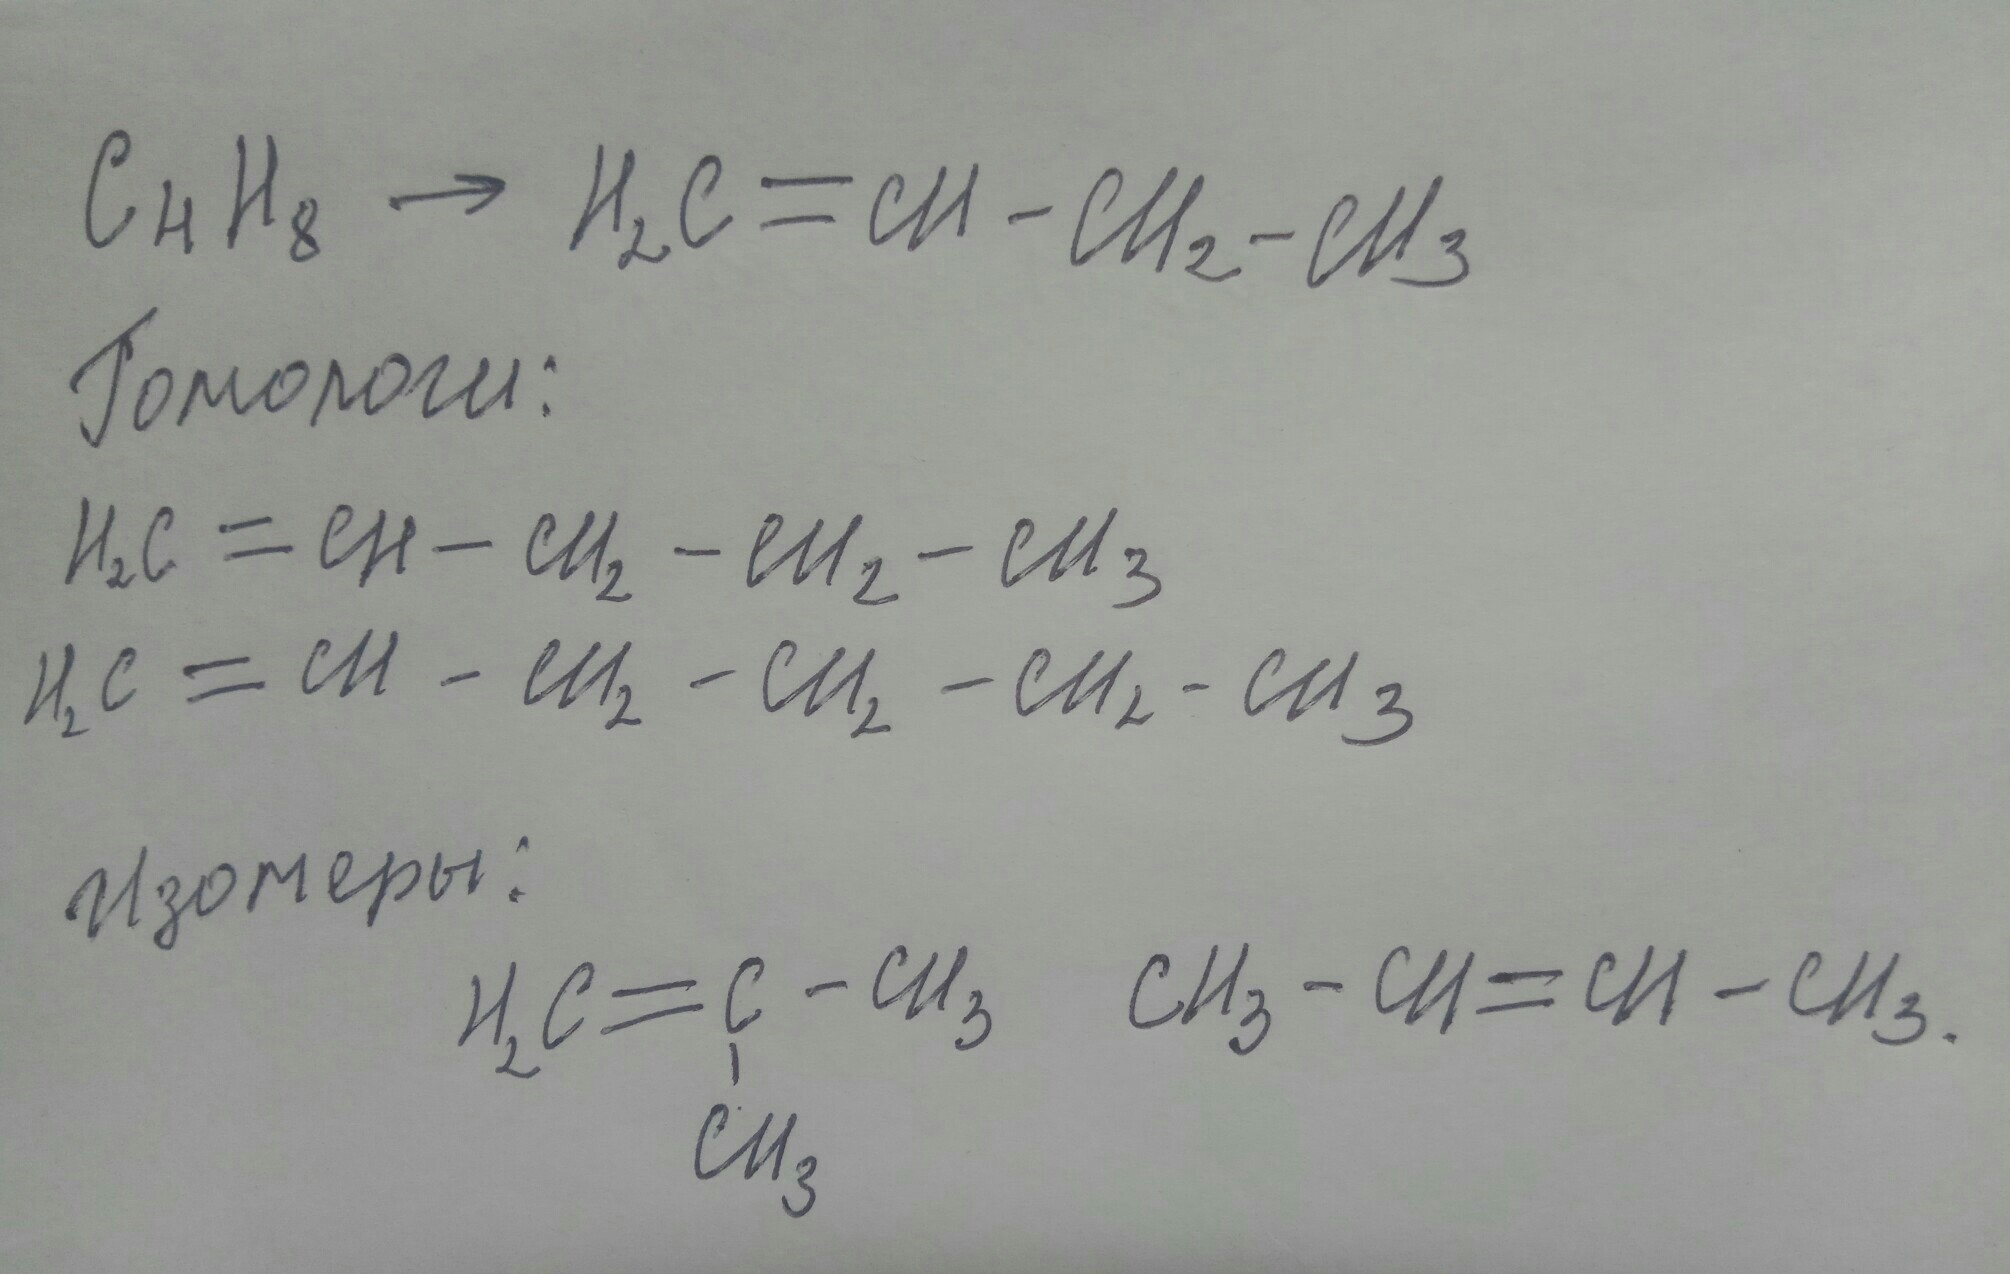 C₄H₈ → H₂C=CH-CH₂-CH₃
Гомологи:
H₂C=CH-CH₂-CH₂-CH₃
H₂C=CH-CH₂-CH₂-CH₂-CH₃
Изомеры:
H₂C=C-CH₃ CH₃-CH=CH-CH₃.
|
CH₃